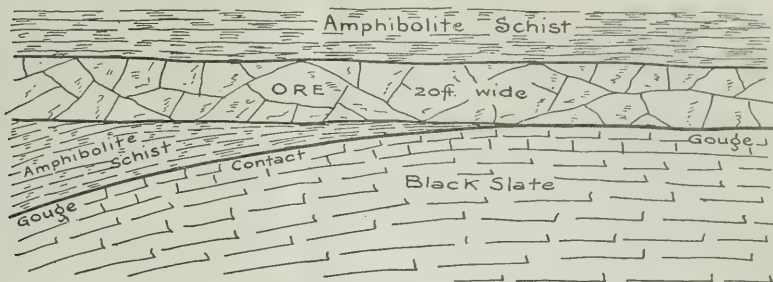 Amphibolite Schist
ORE 20ft. wide
Amphibolite Schist
Contact
Gouge
Gouge
Black Slate